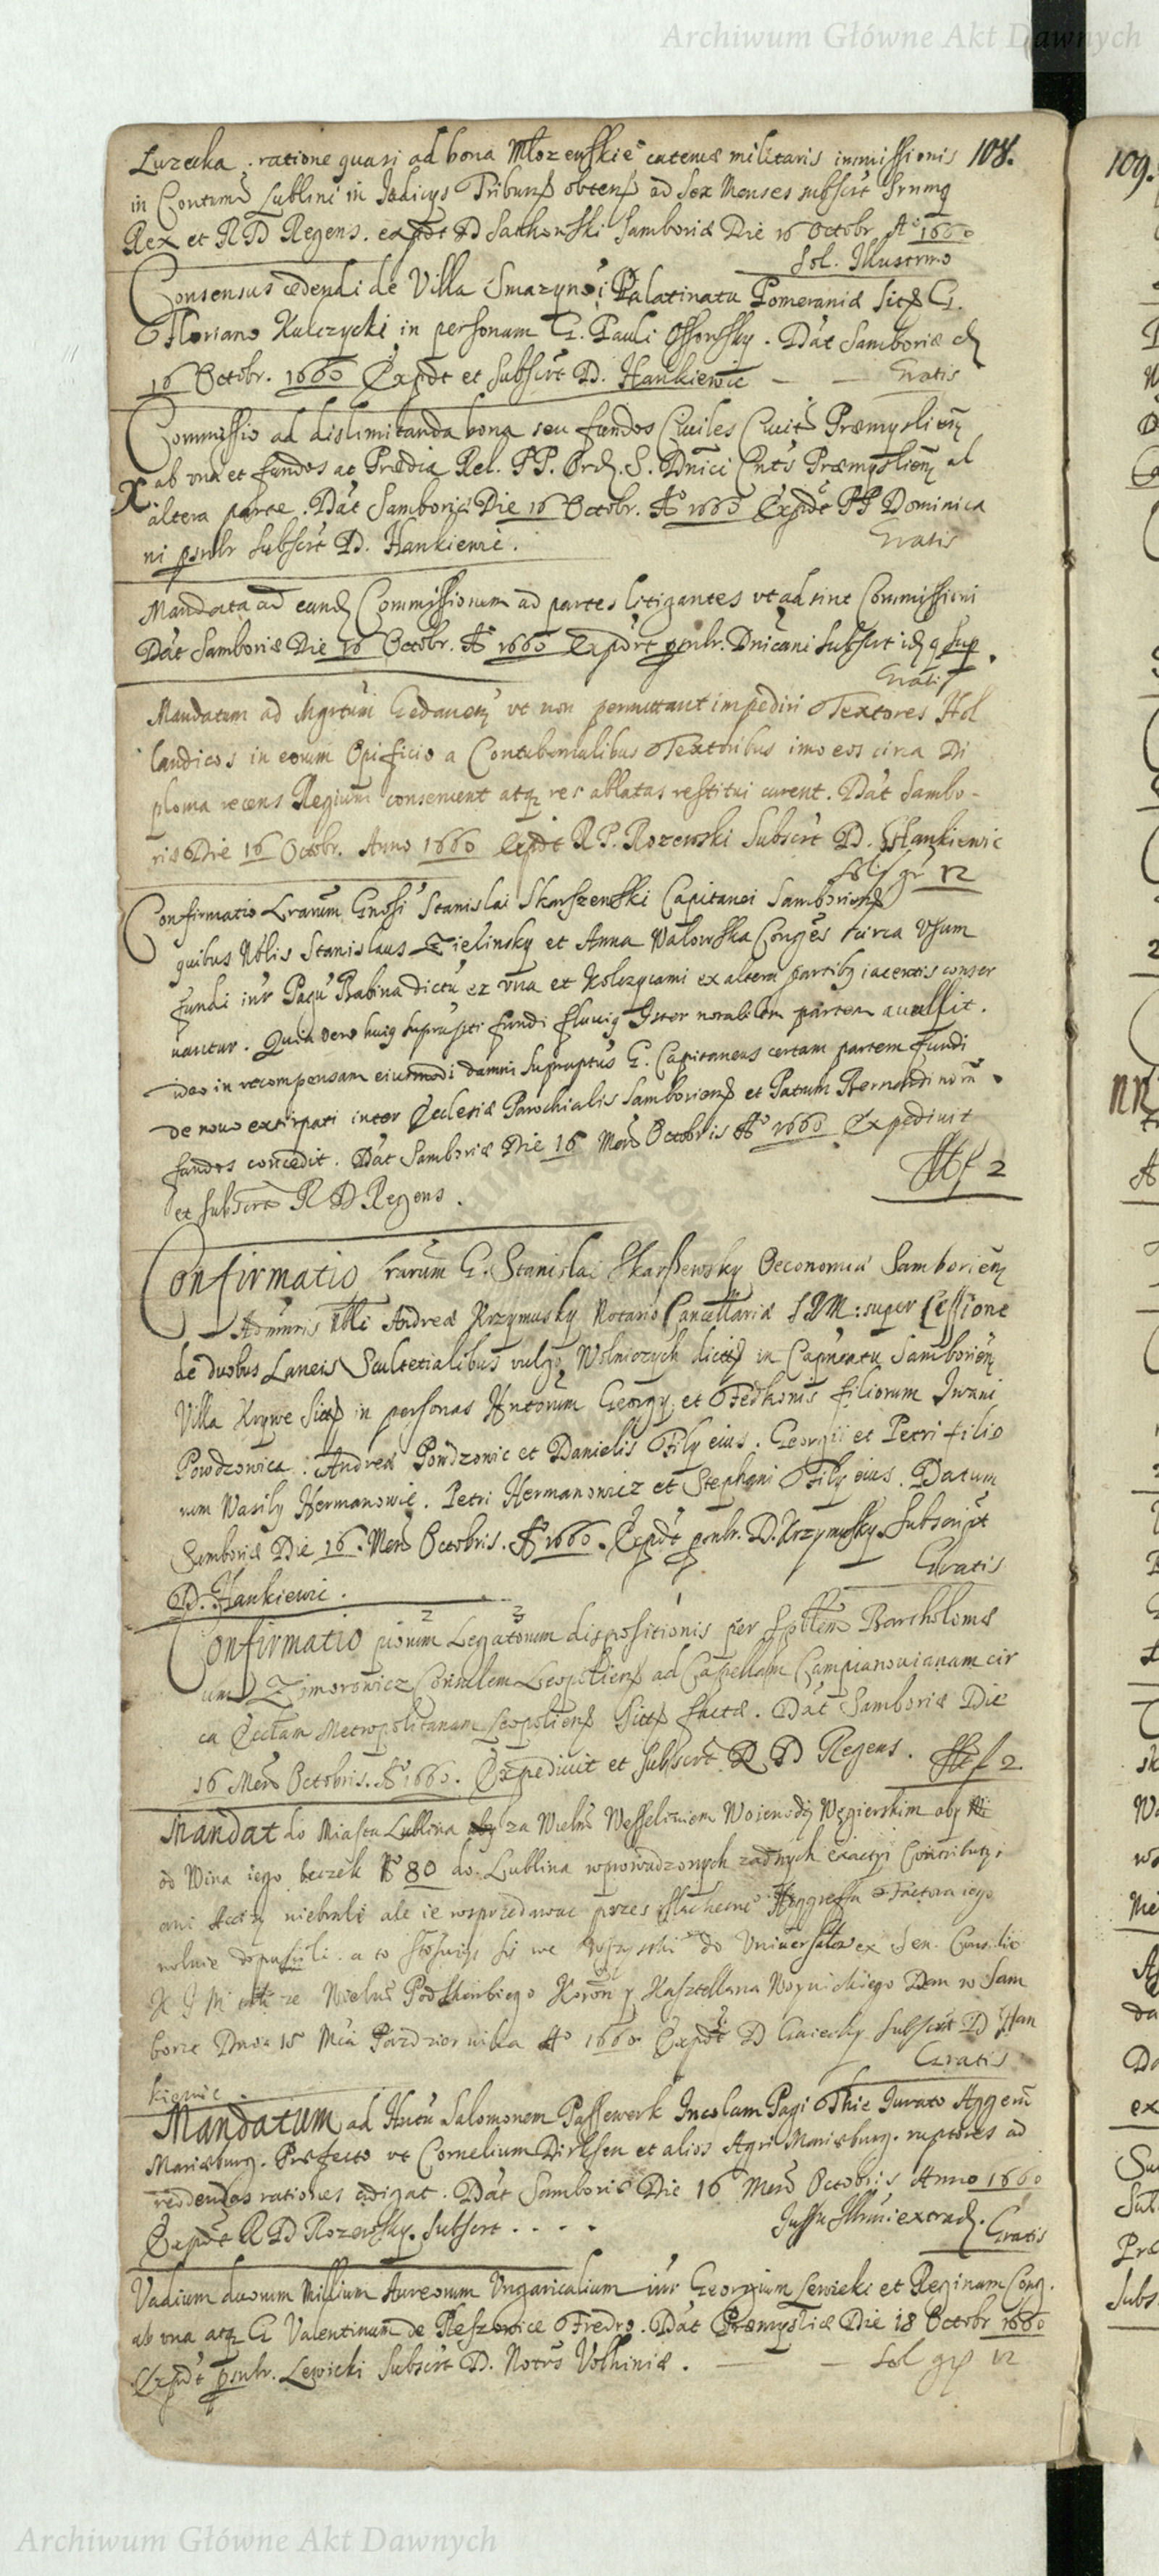 Archiwum Główne Akt Dawnych
108.
Luzecka. ratione quasi ad bona Mlozewskie cutemæ militaris immissionis
in Lublini in Judicys ad sex Menses subscrt
Rex et R D Regens. expdt D Sachowski Samboriæ Die 16 Octobr Ao 1660
Sol. Illustrmo
Consensus cedendi de Villa Smazyno i Palatinatu Pomeraniæ G.
Floriano Kulczycki in personam G. Pauli Ossowsky. Dat Samboriæ d
16 Octobr. 1660 Expdt et Subscrt D. Hankiewic — — Gratis
Commissio ad dislimitanda bona seu fundos Ciuiles Ciuit Præmyslien
X ab vna et fundos ac Prædia Rel. PP. Ord. S. Dnici Cnts Præmyslien al
altera parte. Dat Samboriæ Die 16 Octobr. Ao 1660 Expdt PP Dominica
ni psnlr subscrt D. Hankiewic.
Gratis
Mandata ad eand Commissionem ad partes litigantes vt adsint Commissioni
Dat Samboriæ Die 16 Octobr. Ao 1660 Expdrt psnlr. Dnicani subscrt id q sup.
Gratis
Mandatum ad Mgrtum Gedanen vt non permittant impediri Textores Hol
landicos in eorum Opificio a Contubernalibus Textoribus imo eos circa Di
ploma recens Regium conseruent atq res ablatas restitui curent. Dat Sambo-
riæ Die 16 Octobr. Anno 1660 Expdt R P. Rozewski Subscrt D. Hankiewic
Sol gr 12
Confirmatio Lrarum Gnosi Stanislai Skarszewski Capitanei Samborien
quibus Nblis Stanislaus Zielinsky et Anna Walowska Conges circa Vsum
fundi intr Pagu Babina dictu ex vna et ex altera partibq iacentis conser
uantur. Quia vero huiq suprapti fundi fluuiq Yster notabilem partem auulsit.
ideo in recompensam eiusmodi damni supraptus G. Capitaneus certam partem fundi
de nouo extirpati inter Ecclesiæ Parochialis Samborien et Patrum Bernardinorum
fundos concedit. Dat Samboriæ Die 16 Mens Octobris Ao 1660 Expediuit
et subscrt R D Regens.
f 2
Confirmatio Lrarum G. Stanislai Skarszewsky Oeconomiæ Samborien
Admnris Nbli Andreæ Krzymusky Notario Cancellariæ S R M: super Cessione
de duobus Laneis Scultetialibus vulgo Wolniczych dictis in Capneatu Samborien
Villa Krywe sitis in personas Georgy et Fedkonis filiorum Iwani
Powdzowica. Andreæ Powdzowic et Danielis Fily eius. Georgii et Petri filio
rum Wasily Hermanowic. Petri Hermanowicz et Stephani Fily eius. Datum
Samboriæ Die 16. Mens Octobris. Ao 1660. Expdt psnlr. D. Krzymusky. Subscript
D. Hankiewic.
Gratis
Confirmatio piorum Legatorum dispositionis per Spblem Bartholomæ
um Zimorowicz Consulem Leopolien ad Capellam Campianouianam cir
ca Ecclam Metropolitanam Leopolien sitam factæ. Dat Samboriæ Die
16 Mens Octobris. Ao 1660. Expediuit et subscrt R D Regens. f 2.
Mandat do Miasta Lublina za Wielm Wesseliniem Woiewodą Węgierskim aby
od Wina iego beczek No 80 do Lublina wprowadzonych zadnych exactyi Contributyi
ani Accizy niebrali ale ie rosprzedawac przez Factora iego
wolnie dopuscili. a to do Vniuersału ex Sen. Consilio
Wielm Podskarbiego Koron y Kasztellana Woynickiego Dan w Sam
borze Dnia 15 Mca Pazdziernika Ao 1660 Expdt D Gaiecky Subscrt D Han
kiewic.
Gratis
Mandatum ad Salomonem Passewerk Incolam Pagi Thie Iurato Aggerum
Mariæburg. Præfecto vt Cornelium Dirksen et alios Agri Mariæburg. ruptores ad
reddendas rationes adigat. Dat Samboriæ Die 16 Mens Octobris Anno 1660
Expdt R D Rozewsky. Subscrt . . . . Iussu Illmi extrad. Gratis
Vadium duorum Millium Aureorum Vngaricalium intr Georgium Lewicki et Reginam Cong.
ab vna atq G Valentinum de Pleszowice Fredro. Dat Præmysliæ Die 18 Octobr 1660
Expdt psnlr. Lewicki Subscrt D. Notrs Volhiniæ. — — Sol gr 12
109.
Archiwum Główne Akt Dawnych